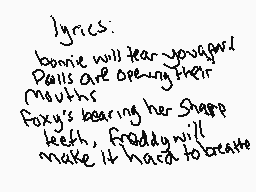 lyrics:
bonnie will tear you apart
Dolls are opening their
mouths
foxy's bearing her sharp
teeth, freddy will
make it hard to breathe